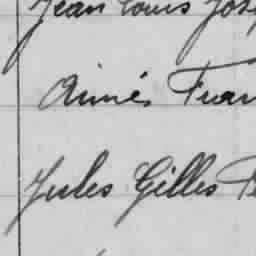 Jean Louis Jos
Aimé Fran
Jules Gilles